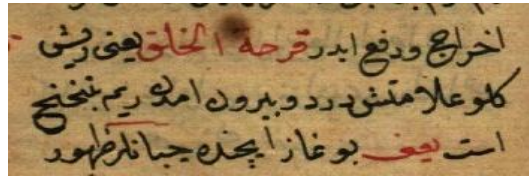 اخراج ودفع ايدر قرحة الخلق يعنى ريش
كلو علامتش درد و بيرون امدن ريم بتنحنح
است يعنى بوغاز ايچنده چبانلر ظهور